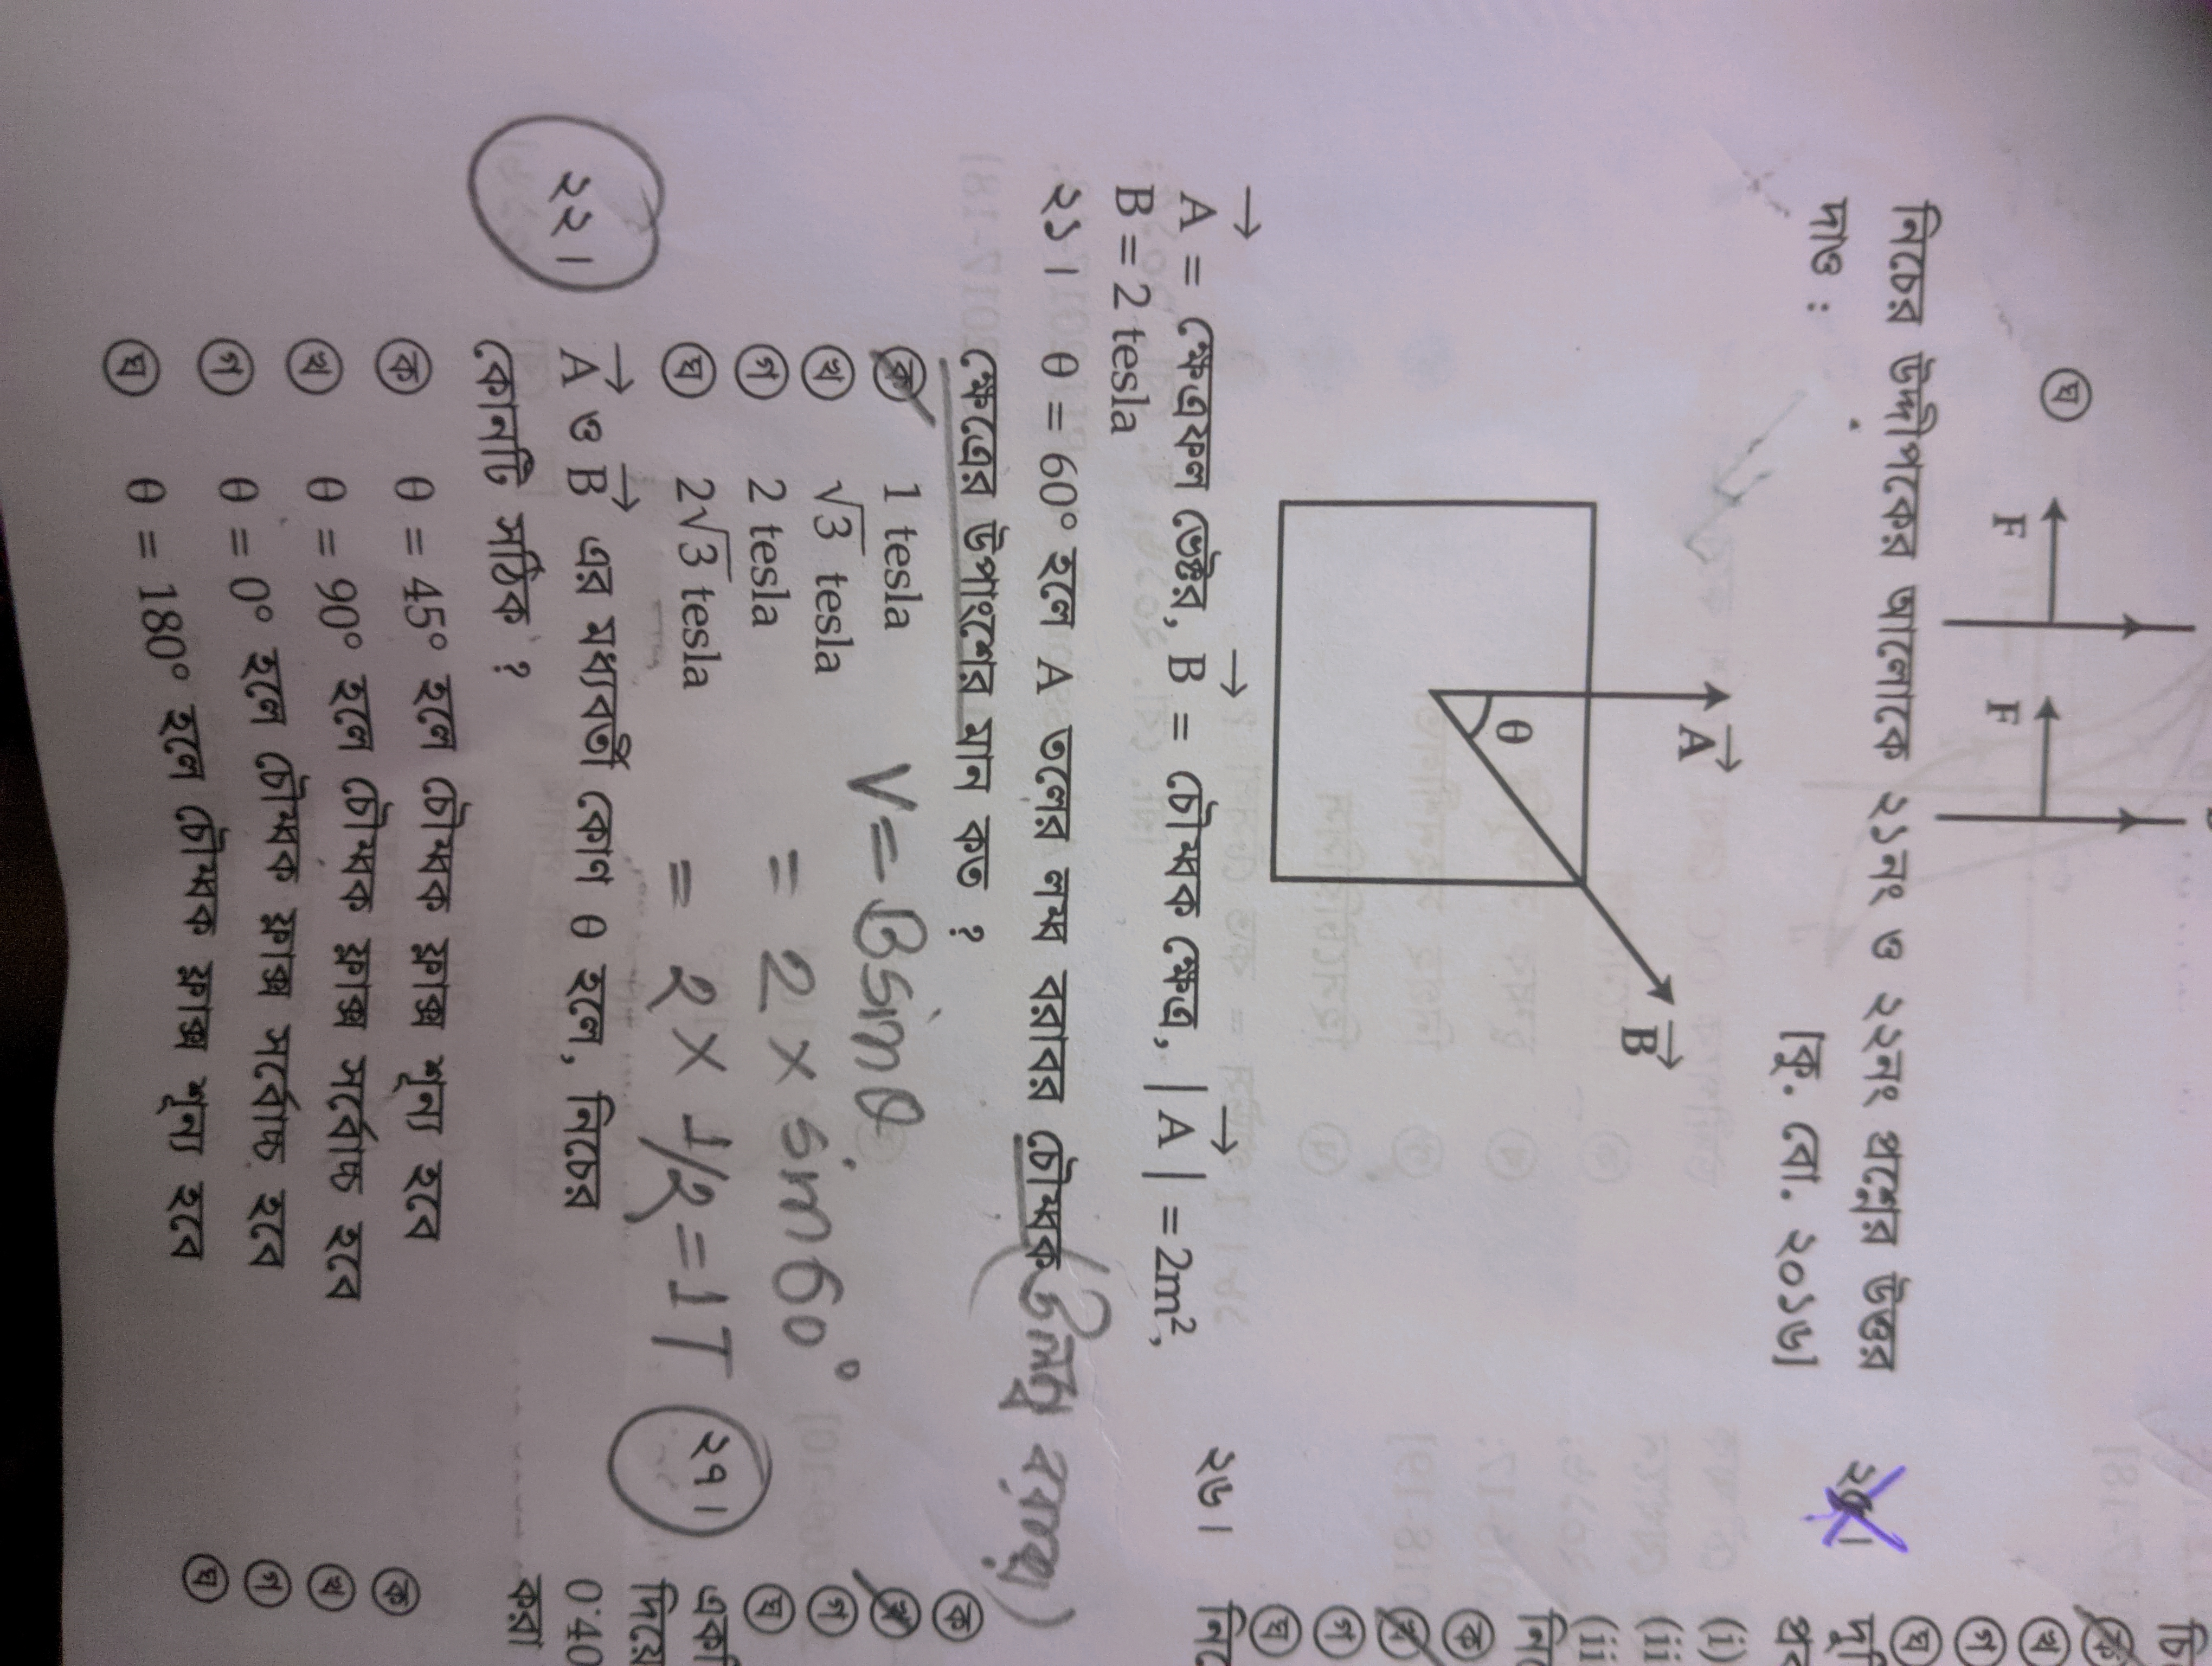 ঘ
F F
নিচের উদ্দীপকের আলোকে ২১নং ও ২২নং প্রশ্নের উত্তর
দাও : [কু. বো. ২০১৬]
A
θ
B
A = ক্ষেত্রফল ভেক্টর, B = চৌম্বক ক্ষেত্র, | A | = 2m²,
B = 2 tesla
২১। θ = 60° হলে A তলের লম্ব বরাবর চৌম্বক
ক্ষেত্রের উপাংশের মান কত ?
ক 1 tesla
খ √3 tesla
গ 2 tesla
ঘ 2√3 tesla
V = Bsinθ
= 2 × sin60°
= 2 × 1/2 = 1T
২২। A ও B এর মধ্যবর্তী কোণ θ হলে, নিচের
কোনটি সঠিক ?
ক θ = 45° হলে চৌম্বক ফ্লাক্স শূন্য হবে
খ θ = 90° হলে চৌম্বক ফ্লাক্স সর্বোচ্চ হবে
গ θ = 0° হলে চৌম্বক ফ্লাক্স সর্বোচ্চ হবে
ঘ θ = 180° হলে চৌম্বক ফ্লাক্স শূন্য হবে
চি
ক
খ
গ
ঘ
দুটি
(i)
(ii
ক
গ
ঘ
২৬।
ক
খ
গ
ঘ
২৭। একটি
দিয়ে
0.40
করা
ক
খ
গ
ঘ